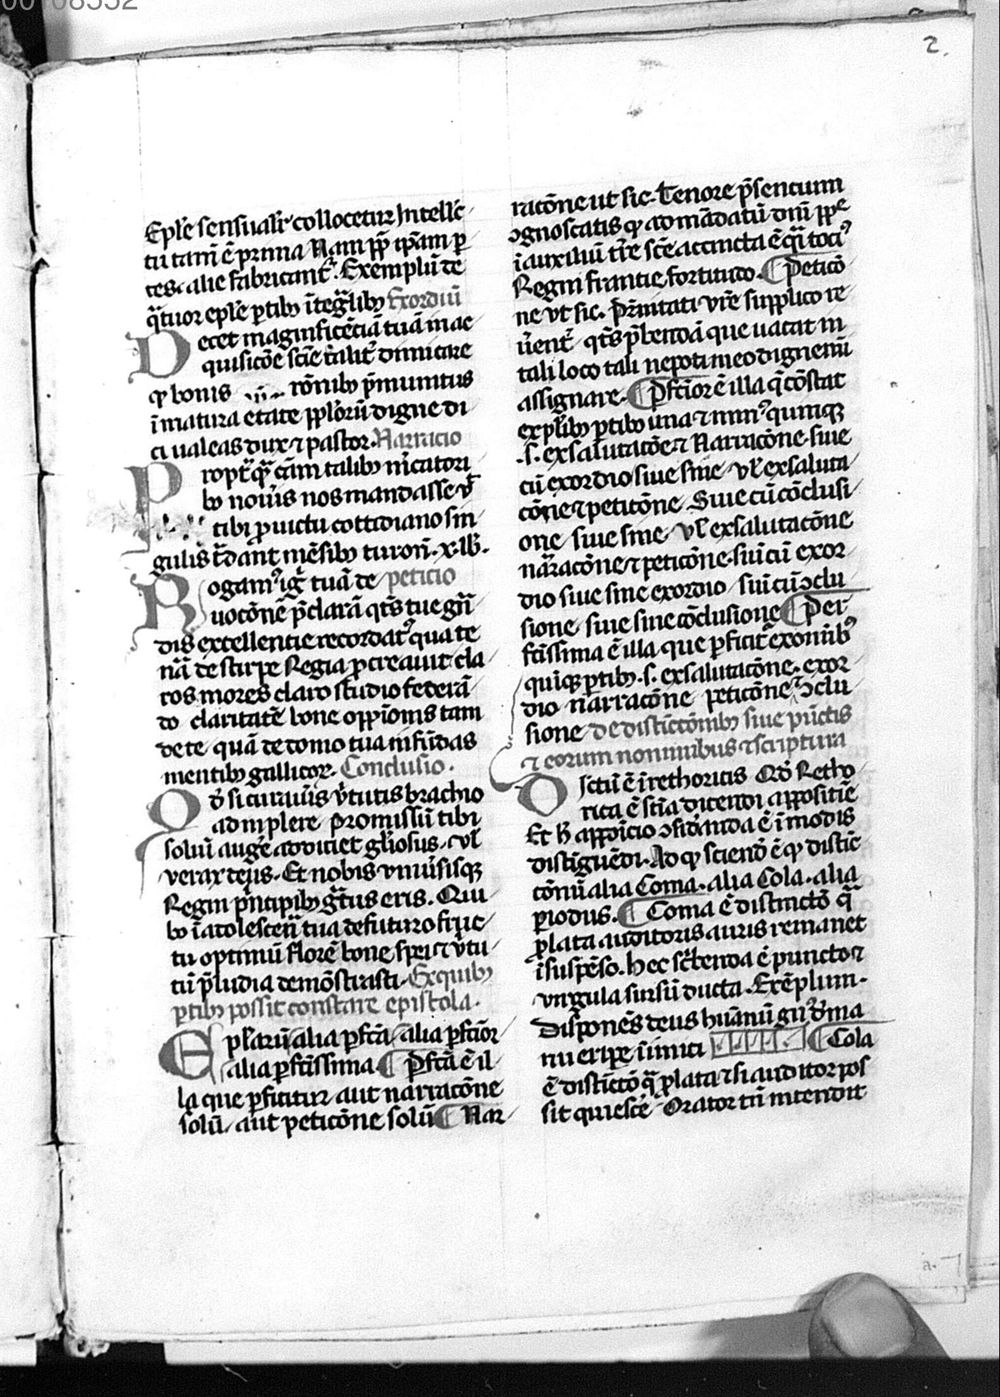 00108552
2.
Eplẽ sensualr̃ collocetur Intellc̃
tũ tam̃ ẽ prima Nam pp̃ qm̃ p̱
tes alie fabricant̃. Exemplũ de
q̃tuor eplẽ ptibꝫ ĩteg̃libꝫ Exordiũ
Decet magnificẽciã tuã in ac
quisicõe scĩe tãlit̃ dimicare
ꝙ bonis rõnibꝫ p̃munitus
ĩ matura etate pplõrũ digne di
ci ualeas dux ⁊ pastor. Narracio
Propt̃ q̃ cãm talibꝫ m̃catori
bꝫ nouĩs nos mandasse ꝙ̃
tibi ꝓ uictu cottidiano sin
gulis t̃dant mẽsibꝫ turoñ. x. lb̃.
Rogamꝰ ig̃ tuã de peticio
uocõnẽ p̃clarã qt̃s tue g̃ñ
dis excellentie recordat̃ qua te
nã̃ de stirpe Regia ꝓcreauit cla
ros mores claro studio federã
do claritatẽ bone oppiõnis tam
de te quã de domo tua infũdas
mentibꝫ gallicoꝝ. Conclusio.
Qd̃ si curauĩs v̾tutis brachio
adimplere promissũ tibi
soluĩ auge̾ adoiciet gl̃iosus, vl̃
verax deus. Et nobis vniuĩsisqꝫ
Regni p̃ncipibꝫ g̃tus eris. Qui
bꝫ ĩ adolescenc̃ tua de futuro fruc
tu optimũ florẽ bone spei ⁊ v̾tu
tũ p̃ludia demõstrasti. Ex quibꝫ
ptibꝫ possit constare epistola.
Eplarũ alia pfc̃a, alia pfc̃ior
alia pfc̃issima ¶ Pfc̃a ẽ il
la que pficitur aut narracõne
solũ, aut peticõne solũ ¶ Nar
racõne ut sic. Tenore p̃sencium
ꝯgnoscatis ꝙ ad mãdatũ dnĩ ppᵉ
ĩ auxiliũ tr̃e scẽ accincta ẽ q̃i tociꝰ
Regni francie fortitudo. ¶ Peticõ
ne vt sic. P̃nitati vr̃e supplico re
u̾ent̃ qt̃s p̃bendã que uacat in
tali loco tali nepoti meo dignemĩ
assignare. ¶ Pfc̃ior ẽ illa q̃ cõstat
ex pl̃ibꝫ ptibꝫ una ⁊ minꝰ quinqꝫ
.s. ex salutacõe ⁊ Narracõne. siue
cũ exordio siue sine vl̃ ex saluta
cõne ⁊ peticõne. Siue cũ cõclusi
one siue sine vl̃ ex salutacõne
nãracõne ⁊ peticõne. siũ cũ exor
dio siue sine exordio siũ cũ ꝯclu
sione, siue sine cõclusione ¶ Per
fc̃issima ẽ illa que pficit̃ ex omĩbꝰ
quinqꝫ ptibꝫ .s. ex salutacõne. exor
dio narracõne peticõne ⁊ ꝯclu
sione de distĩcc̃onibꝫ siue pũctis
⁊ eorum nominibus ⁊ scriptura
Dictũ ẽ ĩ rethoricis Qd̃ Retho
rica ẽ scĩa dicendi appositiẽ
Et h̃ appõicio ꝯsid̾anda ẽ ĩ modis
distĩguẽdi. Ad q̃ sciend̃ ẽ ꝙ distic̃
cõnũ alia Coma. alia Cola. alia
piodus. ¶ Coma ẽ distinctõ q̃
plata auditoris auris remanet
ĩ suspẽso. hec sc̃benda ẽ puncto ⁊
virgula sursũ ducta. Exẽplum.
Disponẽs deus huãnũ gñ̃ d̾ma
nu eripe inimici ¶ Cola
ẽ distictõ q̃ plata ⁊ si auditor pos
sit quiesc̾e Orator tñ intendit
a. 7